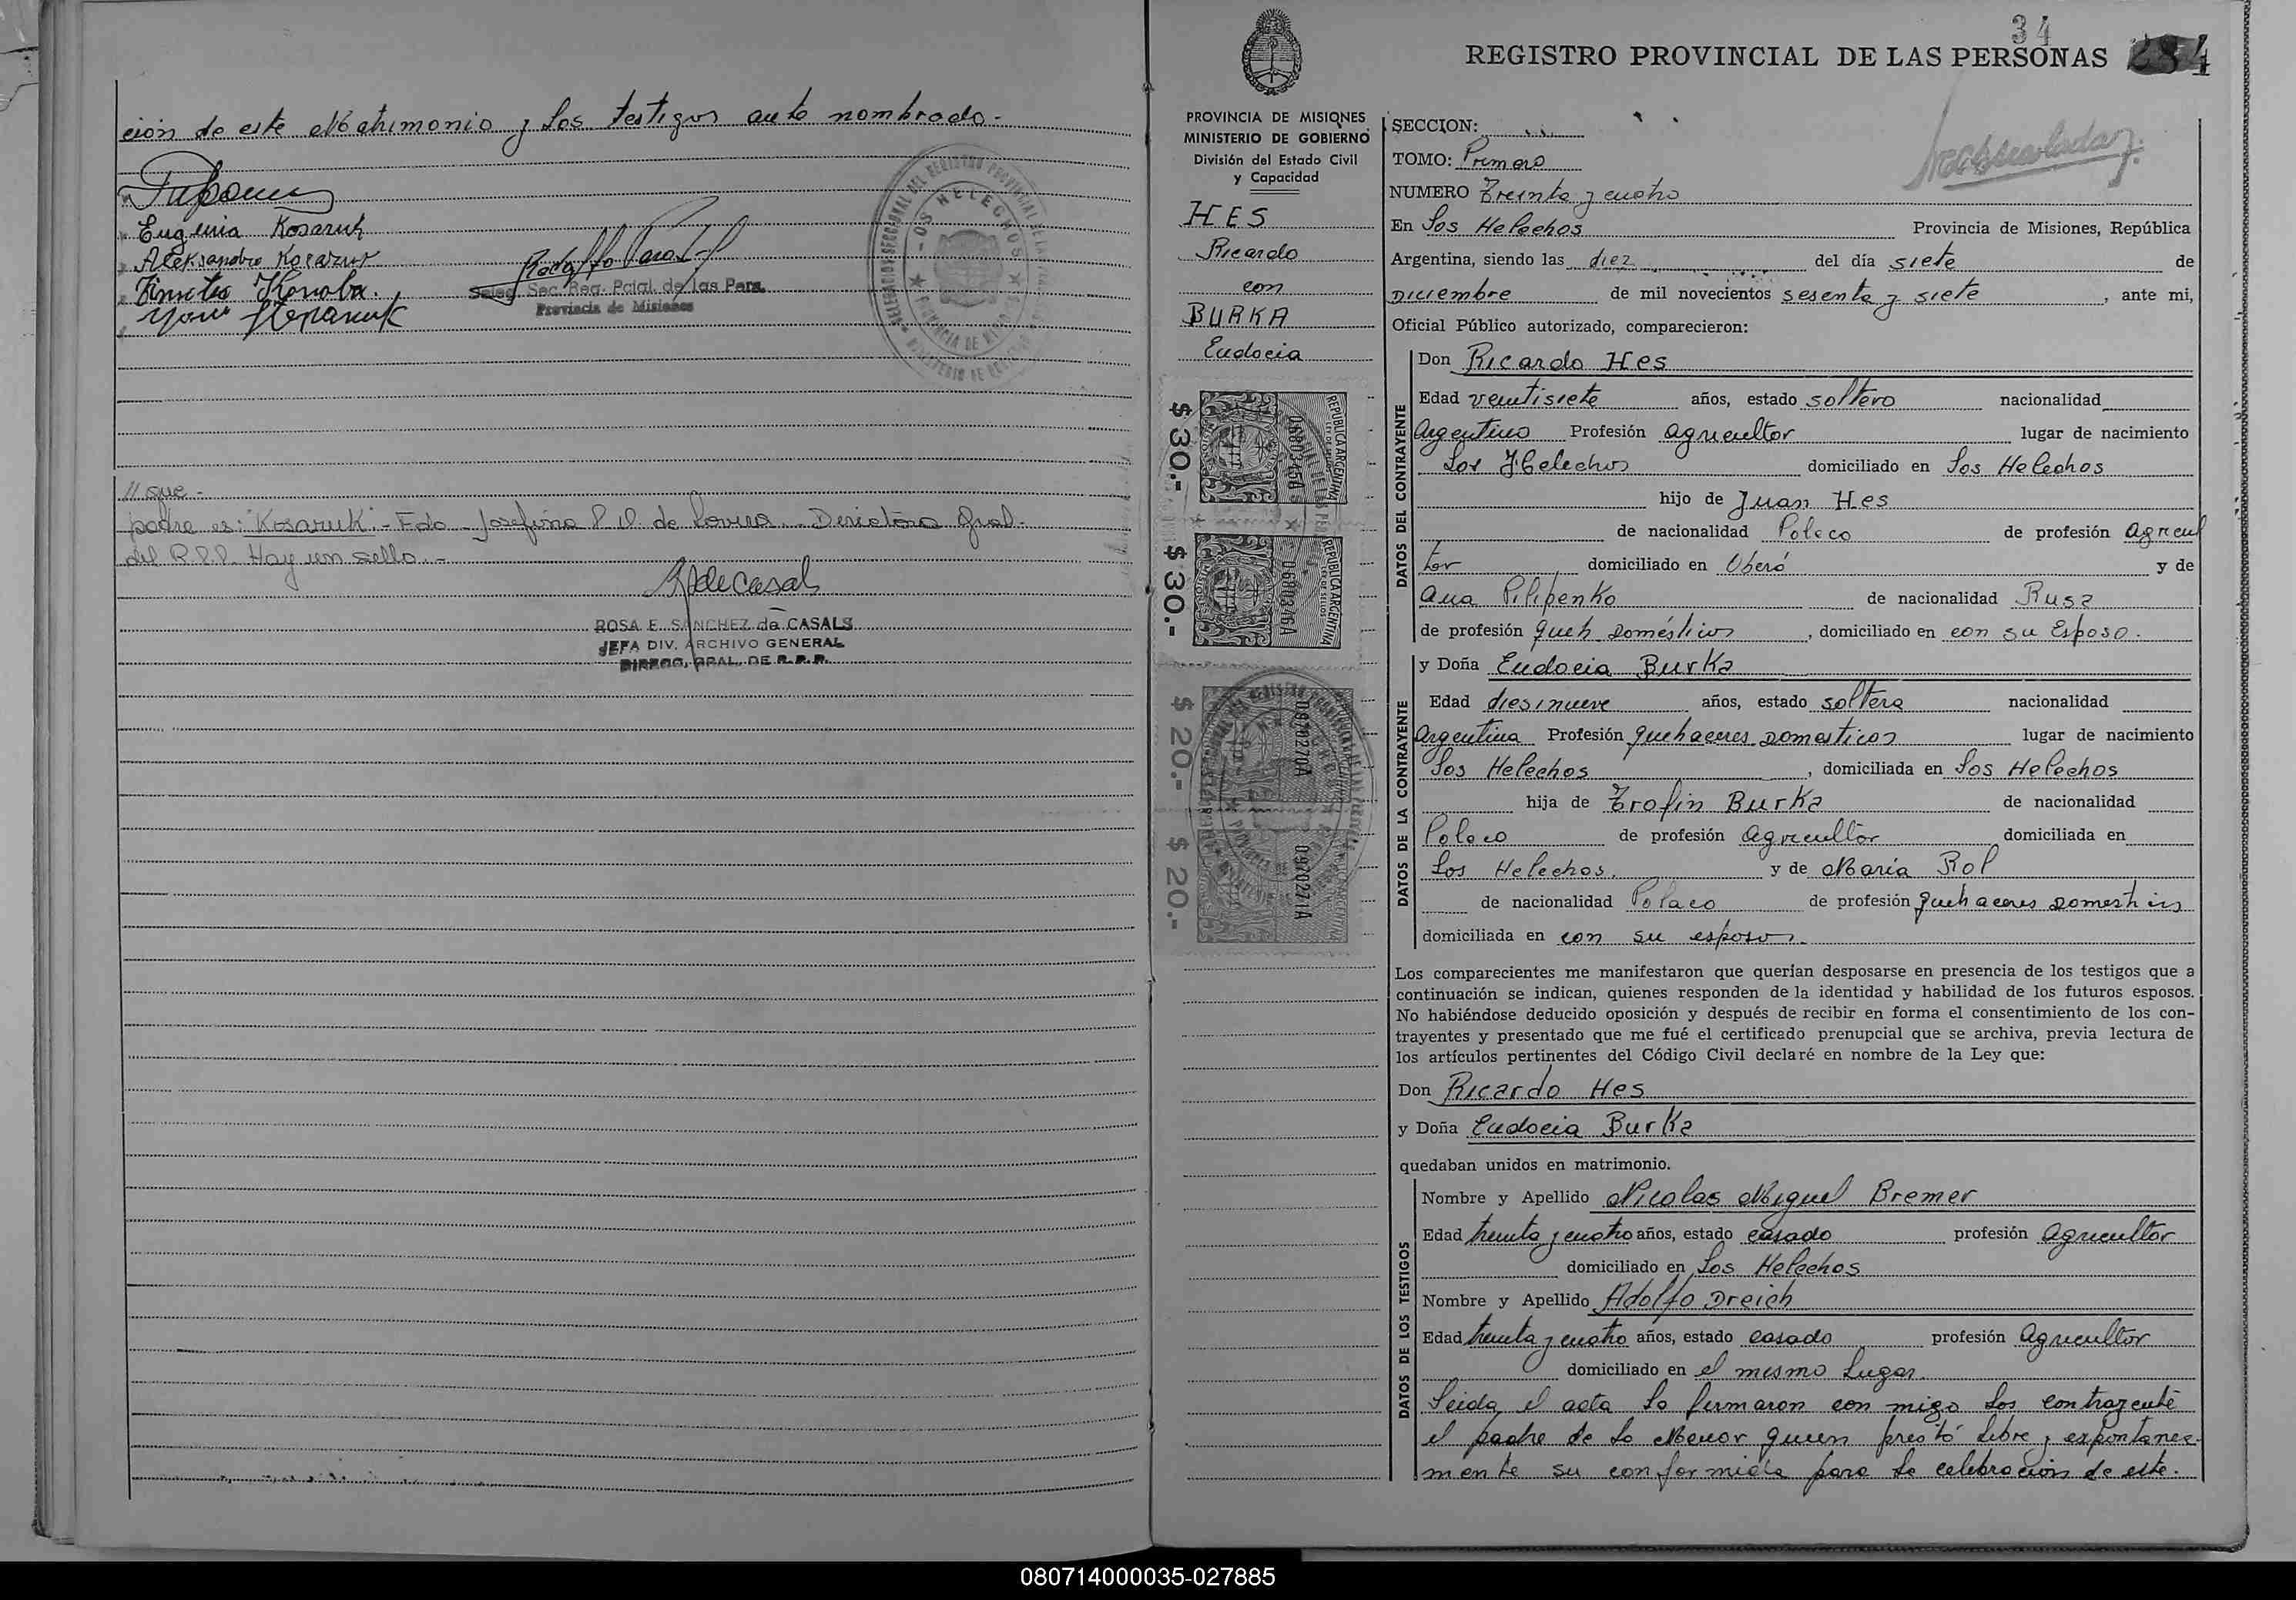 ción de este Matrimonio y los testigos ante nombrado.-
Eugenia Kosaruk
Aleksandro Kocazuk
Konoba.
Rodolfo
Deleg. Sec. Reg. Pcial. de las Pers.
Provincia de Misiones
LOS HELECHOS
// que -
padre es: "Kosaruk".- Fdo - Josefina P. V. de Lovera - Directora Gral.
del R.P.P. Hay un sello.-
RdeCasals
ROSA E. SANCHEZ de CASALS
JEFA DIV. ARCHIVO GENERAL
DIRECC. GRAL. DE R.P.P.
34
REGISTRO PROVINCIAL DE LAS PERSONAS 284
PROVINCIA DE MISIONES
MINISTERIO DE GOBIERNO
División del Estado Civil
y Capacidad
HES
Ricardo
con
BURKA
Eudocia
$ 30.-
REPUBLICA ARGENTINA
$ 30.-
0680316A
REPUBLICA ARGENTINA
$ 20.-
0970270A
$ 20.-
0970271A
SECCION:
TOMO: Primero
NUMERO Treinta y cuatro
En Los Helechos Provincia de Misiones, República
Argentina, siendo las diez del día siete de
Diciembre de mil novecientos sesenta y siete, ante mi,
Oficial Público autorizado, comparecieron:
DATOS DEL CONTRAYENTE
Don Ricardo Hes
Edad veintisiete años, estado soltero nacionalidad
Argentino Profesión agricultor lugar de nacimiento
Los Helechos domiciliado en Los Helechos
hijo de Juan Hes
de nacionalidad Polaco de profesión Agricul
tor domiciliado en Oberá y de
Ana Pilipenko de nacionalidad Rusa
de profesión queh. Domésticos, domiciliado en con su Esposo.
DATOS DE LA CONTRAYENTE
y Doña Eudocia Burka
Edad diesinueve años, estado soltera nacionalidad
Argentina Profesión quehaceres Domesticos lugar de nacimiento
Los Helechos, domiciliada en Los Helechos
hija de Trofin Burka de nacionalidad
Polaco de profesión Agricultor domiciliada en
Los Helechos. y de Maria Rol
de nacionalidad Polaco de profesión quehaceres Domesticos
domiciliada en con su esposo.
Los comparecientes me manifestaron que querían desposarse en presencia de los testigos que a
continuación se indican, quienes responden de la identidad y habilidad de los futuros esposos.
No habiéndose deducido oposición y después de recibir en forma el consentimiento de los con-
trayentes y presentado que me fué el certificado prenupcial que se archiva, previa lectura de
los artículos pertinentes del Código Civil declaré en nombre de la Ley que:
Don Ricardo Hes
y Doña Eudocia Burka
quedaban unidos en matrimonio.
DATOS DE LOS TESTIGOS
Nombre y Apellido Nicolas Miguel Bremer
Edad treinta y cuatro años, estado casado profesión Agricultor
domiciliado en Los Helechos
Nombre y Apellido Adolfo Dreich
Edad treinta y cuatro años, estado casado profesión Agricultor
domiciliado en el mismo Lugar.
Leida el acta la firmaron con migo los contrayente
el padre de la Menor quien prestó libre y expontanea-
mente su conformida para la celebración de este.
080714000035-027885